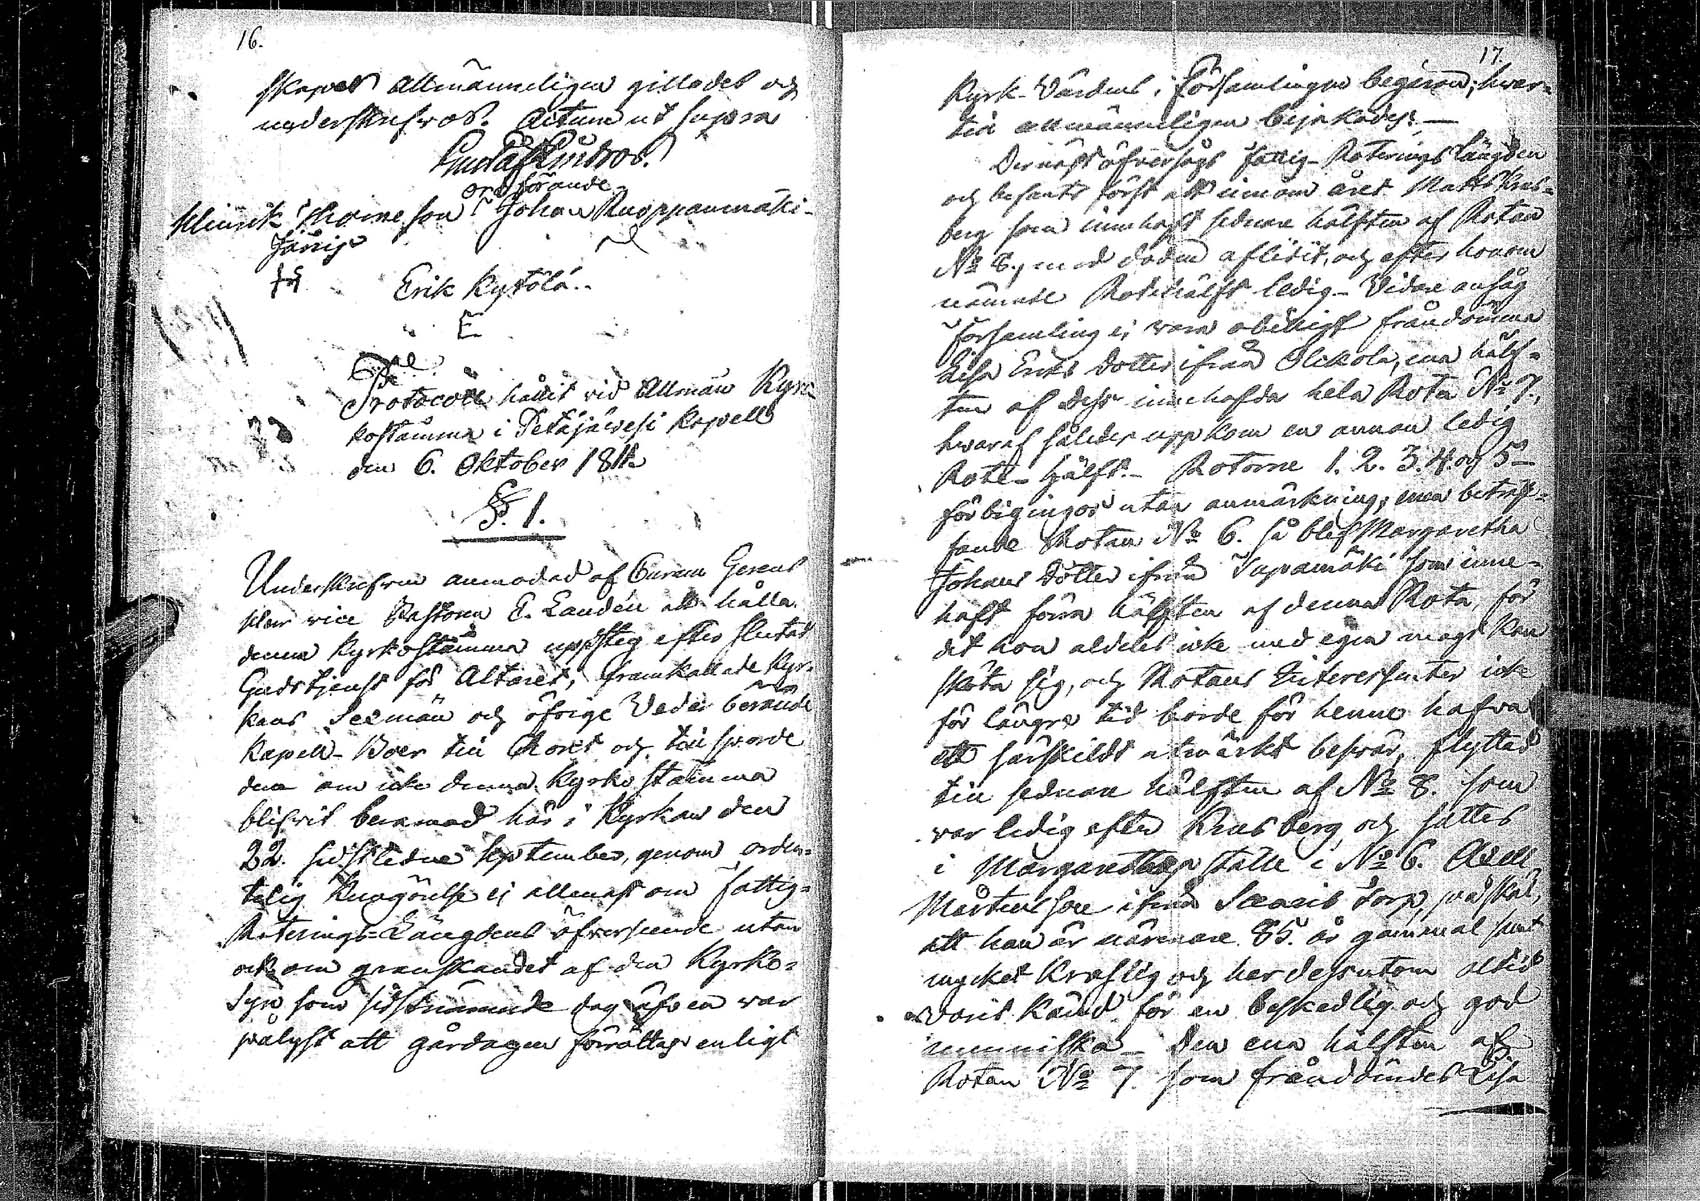 16.
skapet allmänneligen gillades och
underskrefvos. Actum ut supra
Gustaf
ordförande
Henrik Thomsson Johan Ruoppanmäki
Erik Kytölä
E
Protocoll hållit vid Allmän Kyr-
kostämma i Petäjävesi Kapell
den 6. Oktober
§. 1.
Underskrefven anmodad af Curam Gerens
Herr vice Pastoren E. Landén att hålla
denna Kyrkostämma uppsteg efter slutad
Gudstjenst för Altaret, framkallade Kyr-
kans Sexmän och öfrige Vederbörande
Kapell-Boer till Choret och tillsporde
dem om icke denna Kyrkostämma
blifvit beramad här i Kyrkan den
22. sidstledne September, genom orden-
telig Kungörelse ej allenast om Fattig-
Roterings-Längdens öfverseende utan
ock om granskandet af den Kyrko-
Syn som sidstnämnde dag äfven var
pålyst att gårdagen förrättas enligt
17.
Kyrk-Värdens i Församlingen begäran; hvar-
till allmänneligen bejakades. —
Dernäst öfversågs Fattig-Roterings Längden
och befants först att innom året Matts Krus-
berg som innehaft sednare hälften af Rotan
No 8., med döden aflidit, och efter honom
nämnde Rotehälft ledig - Vidare ansåg
Församling ej vara obilligt fråndömma
Lisa Ersdotter ifrån Olkkola, ena hälf-
ten af dess innehafda hela Rota No 7.,
hvaraf således uppkom en annan ledig
Rote-hälft. - Rotorne 1. 2. 3. 4. och 5 -
förbigingos utan anmärkning; men beträf-
fande Rotan No 6. så blef Margaretha
Johans dotter ifrån som inne-
haft förra hälften af denna Rota, för
det hon aldeles icke med egen magt kan
sköta sig, och Rotans Interessenter icke
för längre tid borde för henne hafva
ett särskildt utmärkt besvär, flyttad
till sednare hälften af No 8. som
var ledig efter Krusberg och sattes
i Margarethas ställe i No 6. Axell
Mårtensson ifrån torp, på skäl,
att han är närmare 85. år gammal samt
mycket Kraslig och har dessutom altid
varit Känd för en beskedlig och god
menniska - Den ena hälften af
Rotan No 7. som fråndömdes Lisa